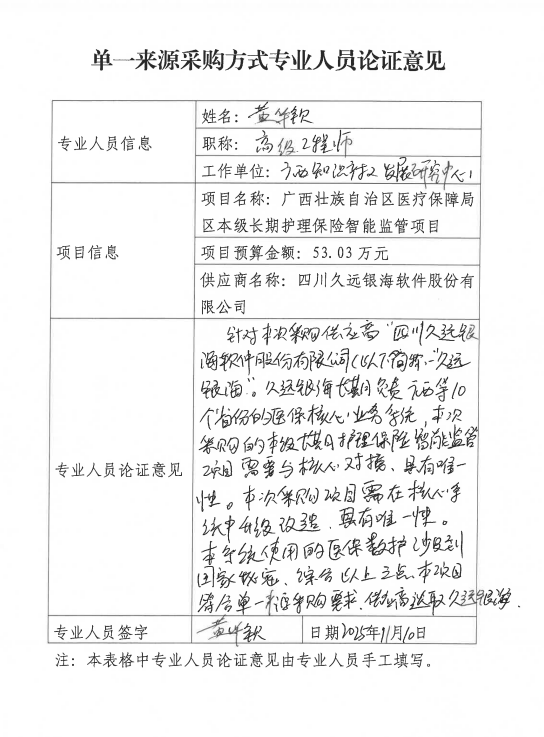 单一来源采购方式专业人员论证意见
专业人员信息
姓名：黄华钦
职称：高级工程师
工作单位：广西知识产权发展研究中心
项目信息
项目名称：广西壮族自治区医疗保障局
区本级长期护理保险智能监管项目
项目预算金额：53.03 万元
供应商名称：四川久远银海软件股份有
限公司
专业人员论证意见
针对本次采购供应商“四川久远银
海软件股份有限公司（以下简称“久远
银海”。久远银海长期负责广西等10
个省份的医保核心业务系统，本次
采购的本级长期护理保险智能监管
项目需要与核心对接、具有唯一
性。本次采购项目需在核心系
统中升级改造，具有唯一性。
本系统使用的医保数据涉及到
国家秘密、综合以上三点，本项目
符合单一来源采购要求，供应商选取久远银海。
专业人员签字
黄华钦
日期2025年11月10日
注：本表格中专业人员论证意见由专业人员手工填写。